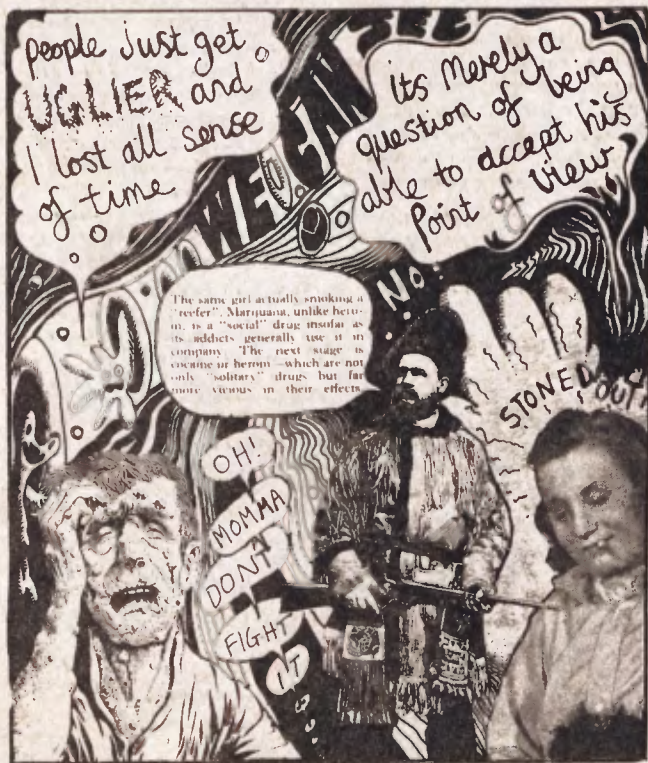 people just get
UGLIER and
I lost all sense
of time
its Merely a
question of being
able to accept his
Point of View
The same girl actually smoking a
"reefer". Marijuana, unlike hero-
in, is a "social" drug insofar as
its addicts generally use it in
company. The next stage is
cocaine or heroin—which are not
only "solitary" drugs but far
more vicious in their effects.
NO!
STONED OUT
OH!
MOMMA
DONT
FIGHT
IT